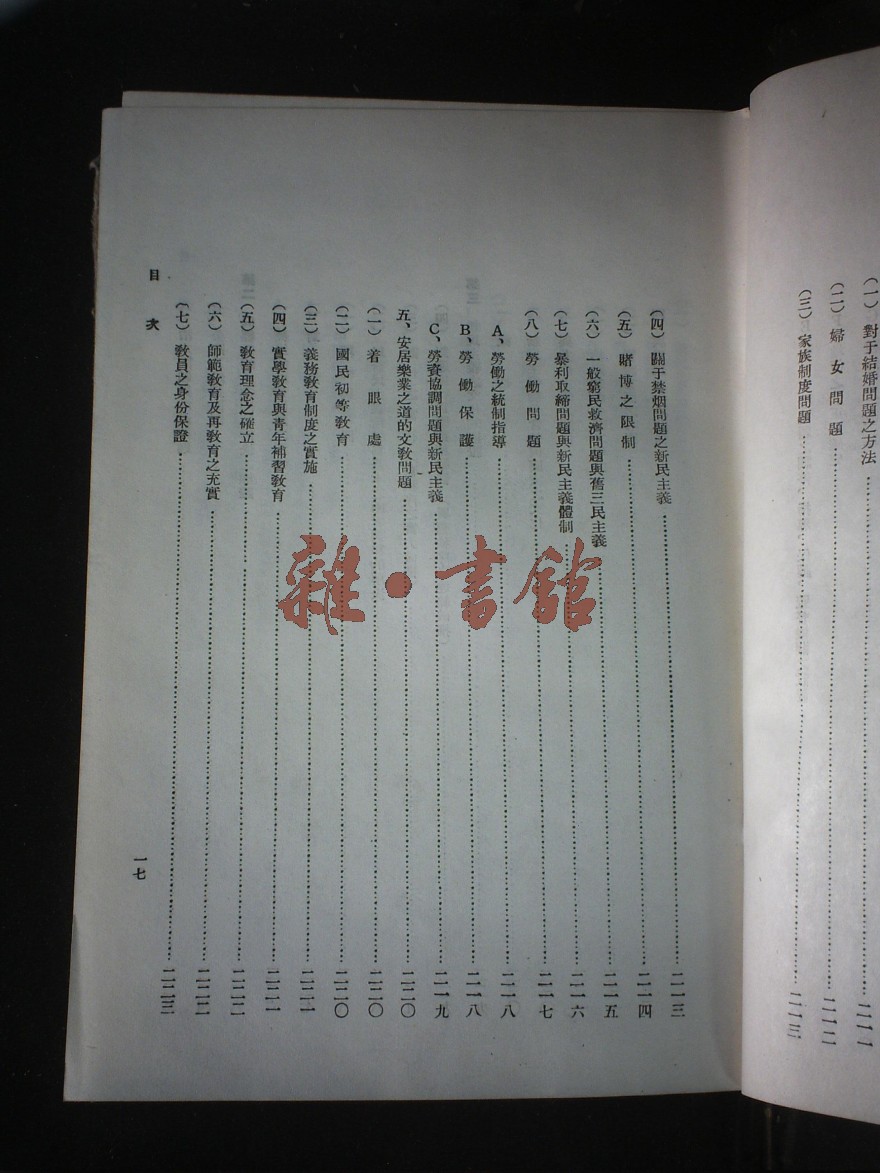 (一) 對于結婚問題之方法……二一一
(二) 婦女問題……二一二
(三) 家族制度問題……二一三
(四) 關于禁烟問題之新民主義……二一三
(五) 賭博之限制……二一四
(六) 一般窮民救濟問題與舊三民主義……二一五
(七) 暴利取締問題與新民主義體制……二一六
(八) 勞働問題……二一七
A、勞働之統制指導……二一八
B、勞働保護……二一八
C、勞資協調問題與新民主義……二一九
五、安居樂業之道的文教問題……二二〇
(一) 着眼處……二二〇
(二) 國民初等教育……二二〇
(三) 義務教育制度之實施……二二一
(四) 實學教育與青年補習教育……二二一
(五) 教育理念之確立……二二二
(六) 師範教育及再教育之充實……二二二
(七) 教員之身份保證……二二三
目次
一七
雜·書館